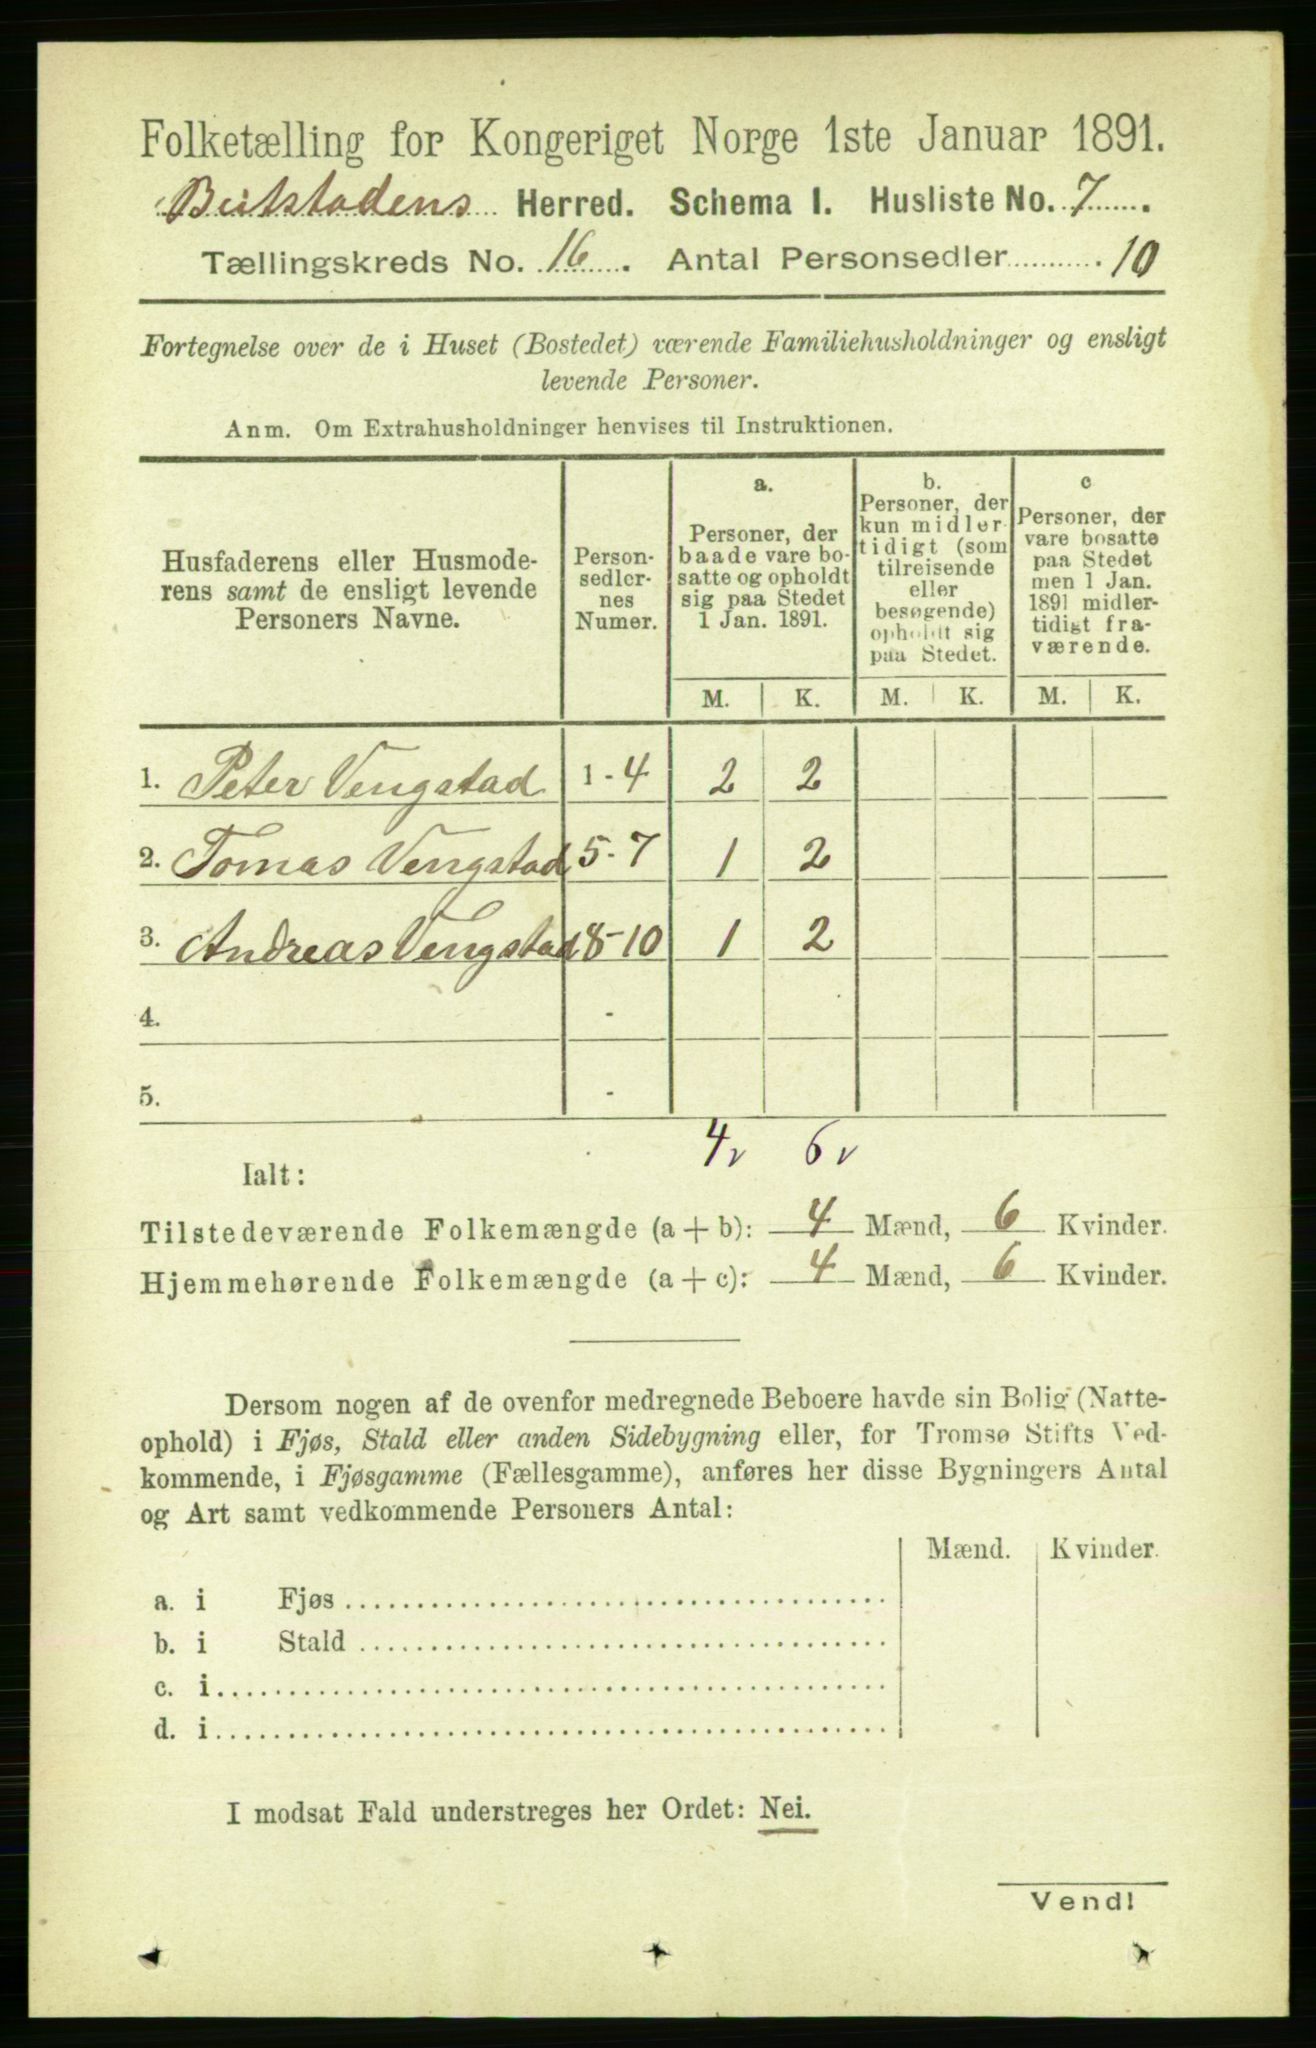 Folketælling for Kongeriget Norge 1ste Januar 1891.
Beitstadens Herred. Schema I. Husliste No. 7.
Tællingskreds No. 16. Antal Personsedler 10
Fortegnelse over de i Huset (Bostedet) værende Familiehusholdninger og ensligt
levende Personer.
Anm. Om Extrahusholdninger henvises til Instruktionen.
Husfaderens eller Husmode-
rens samt de ensligt levende
Personers Navne.
Person-
sedler-
nes
Numer.
a.
Personer, der
baade vare bo-
satte og opholdt
sig paa Stedet
1 Jan. 1891.
b.
Personer, der
kun midler-
tidigt (som
tilreisende
eller
besøgende)
opholdt sig
paa Stedet.
c
Personer, der
vare bosatte
paa Stedet
men 1 Jan.
1891 midler-
tidigt fra-
værende.
M. K. M. K. M. K.
1. Peter Vengstad 1-4 2 2
2. Tomas Vengstad 5-7 1 2
3. Andreas Vengstad 8-10 1 2
4. -
5. -
4v 6v
Ialt:
Tilstedeværende Folkemængde (a + b): 4 Mænd, 6 Kvinder.
Hjemmehørende Folkemængde (a + c): 4 Mænd, 6 Kvinder.
Dersom nogen af de ovenfor medregnede Beboere havde sin Bolig (Natte-
ophold) i Fjøs, Stald eller anden Sidebygning eller, for Tromsø Stifts Ved-
kommende, i Fjøsgamme (Fællesgamme), anføres her disse Bygningers Antal
og Art samt vedkommende Personers Antal:
Mænd. Kvinder.
a. i Fjøs
b. i Stald
c. i
d. i
I modsat Fald understreges her Ordet: Nei.
Vend!